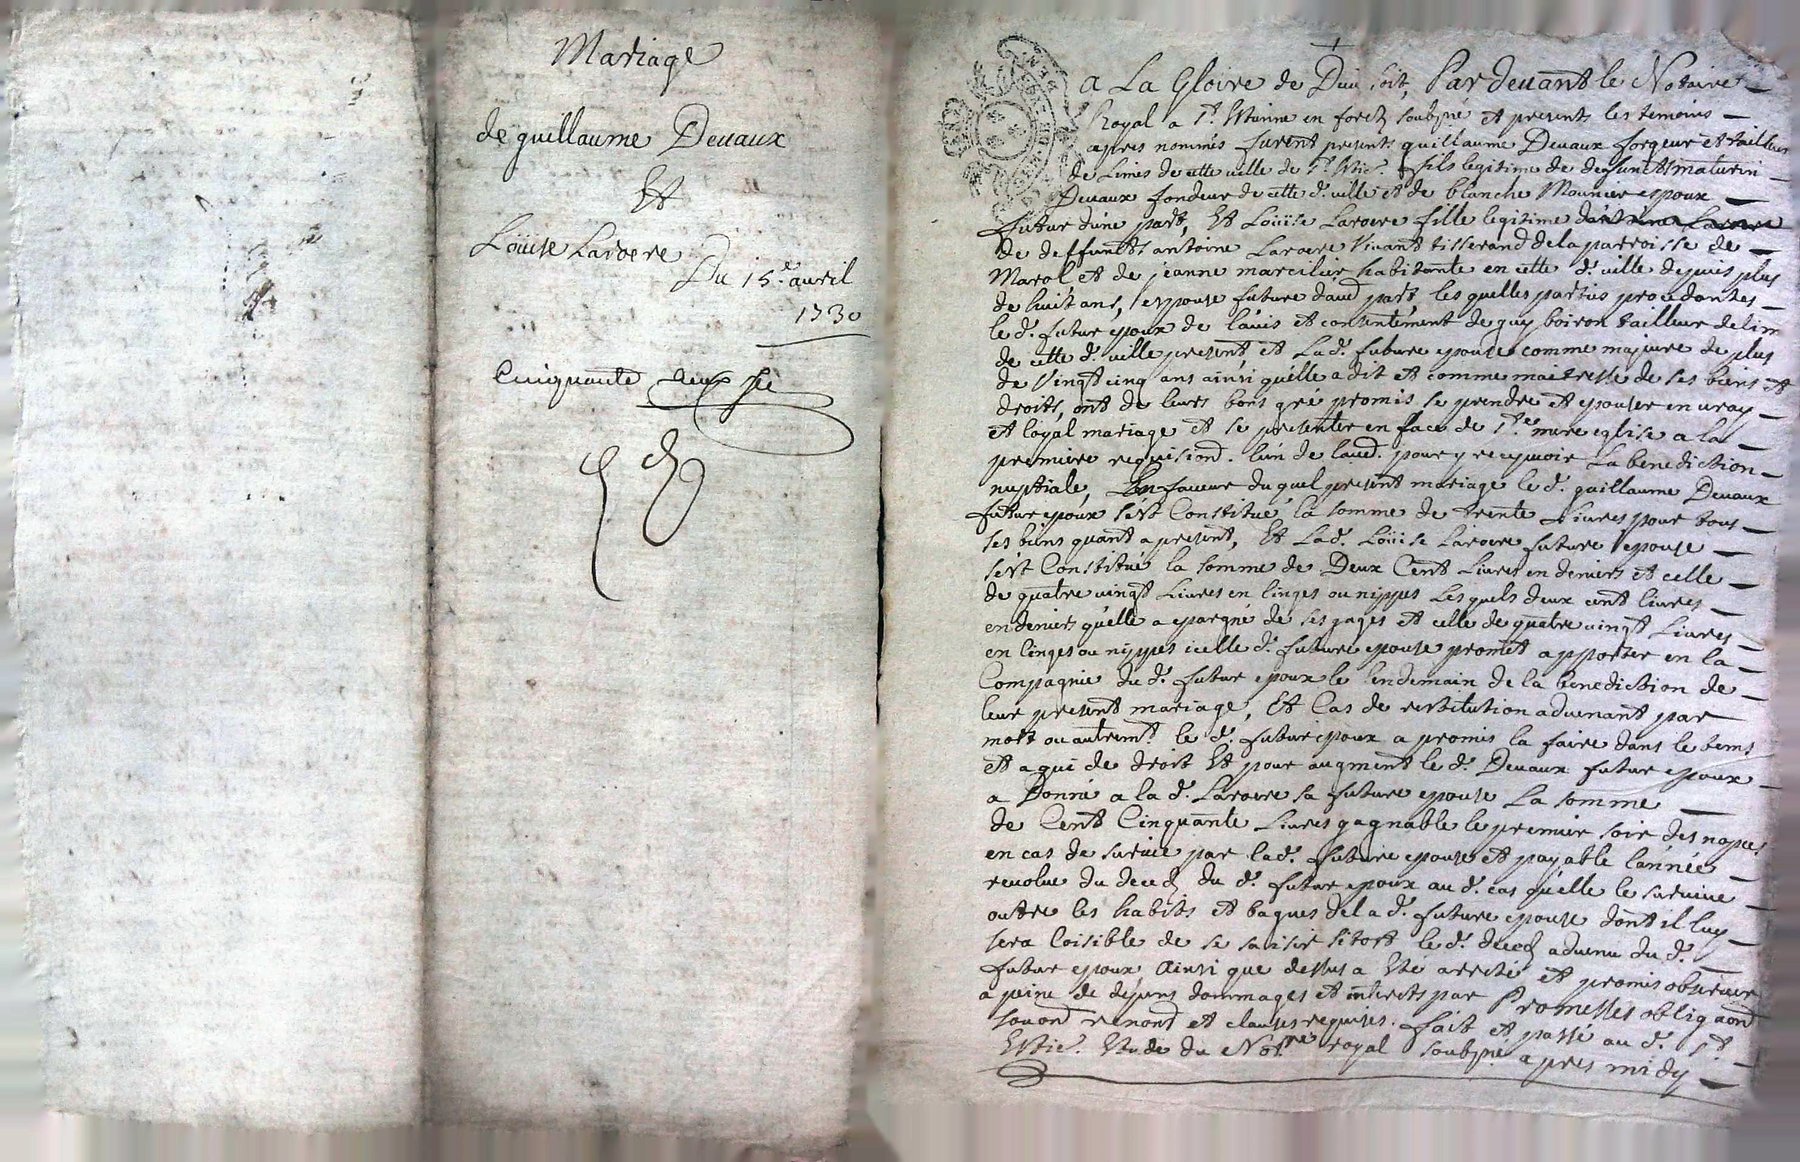 Mariage
de guillaume Deuaux
Et
Loüise Laroere
Du 15.e auril
1730
Cinquante deux
A La Gloire de Dieu soit, Par deuant le Notaire
Royal a St. Etienne en forest soubzné et presents les temoins
apres nommés furent presents guillaume Deuaux forgeur et tailleur
de Limes de cette ville de St. Etie. fils legitime de defunct maturin
Deuaux fondeur de cette d. ville et de blanche Mounier epoux
futur d'une part, Et Loüise Laroere fille legitime
de deffunct antoine Laroere viuant tisserand de la parroisse de
Marol et de jeanne marcilier habitante en cette d. ville depuis plus
de huit ans, espouse future d'aud part, les quelles parties procedantes
le d. futur epoux de l'auis et consentement de guy boiron tailleur de lim
de cette d. ville present, et La d. future epouse comme majeure de plus
de vingt cinq ans ainsi qu'elle a dit et comme maitresse de ses biens et
droits, ont de leurs bons gré promis se prendre et epouser en vray
et loyal mariage et se presenter en face de Ste. mere eglise a la
premiere requisiond. l'un de l'aud. pour y recepuoir La benediction
nuptiale, En faueur du quel present mariage le d. guillaume Deuaux
futur epoux s'est Constitué la somme de trente Liures pour tous
ses biens quant a present, Et La d. Loüise Laroere future epouse
s'est Constitué la somme de Deux Cent Liures en deniers et celle
de quatre vingt Liures en linges ou nippes Les quels deux cent liures
en deniers qu'elle a epargné de ses gages et celle de quatre vingt Liures
en linges ou nippes icelle d. future epouse promet apporter en la
Compagnie du d. futur epoux le lendemain de la benediction de
leur present mariage, Et Cas de restitution aduenant par
mort ou autremt. le d. futur epoux a promis la faire dans le tems
et a qui de droit Et pour augment le d. Deuaux futur epoux
a Donné a la d. Laroere sa future epouse La somme
de Cent Cinquante Liures gagnable le premier soir des nopces
en cas de suruie par la d. future epouse et payable l'année
reuolue du deced du d. futur epoux au d. cas qu'elle le suruiue
outre les habits et bagues de la d. future epouse dont il luy
sera loisible de se saisir sitost le d. deced aduenu du d.
futur epoux Ainsi que dessus a Eté arreté et promis obseruer
a peine de depens dommages et interets par Promesses obligaond
soumond renond et clauses requises. fait et passé au d. St.
Etie. Etude du Not.re royal soubzné apres midy